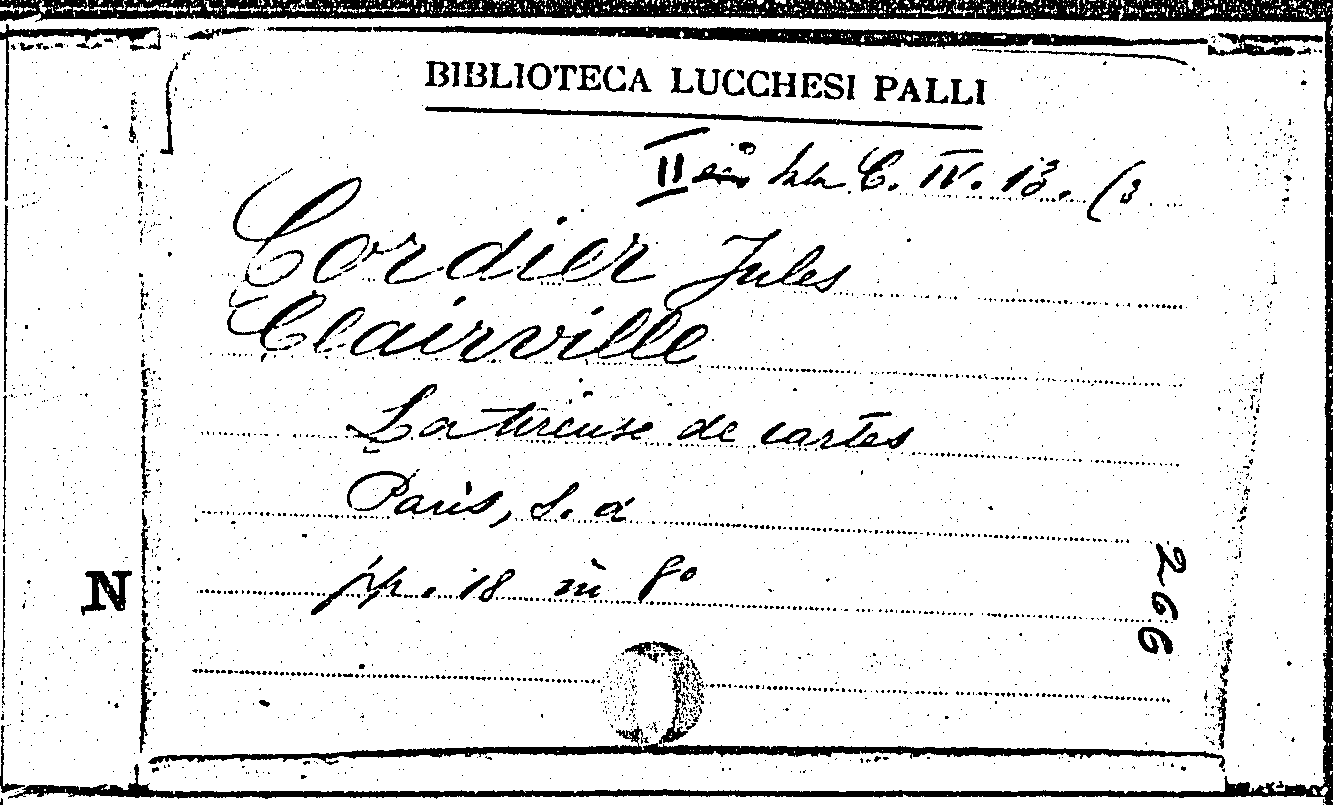 BIBLIOTECA LUCCHESI PALLI
II C. IV. 13. (3
Cordier Jules
Clairville
La tireuse de cartes
Paris, s. a
pp. 18 in 8º
N
266